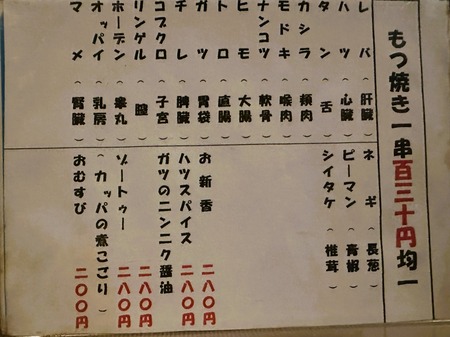 もつ焼き一串百三十円均一
レバ（肝臓）
ハツ（心臓）
タン（舌）
カシラ（頬肉）
モドキ（喉肉）
ナンコツ（軟骨）
ヒモ（大腸）
トロ（直腸）
ガツ（胃袋）
チレ（脾臓）
コブクロ（子宮）
リンゲル（膣）
ホーデン（睾丸）
オッパイ（乳房）
マメ（腎臓）
ネギ（長葱）
ピーマン（青椒）
シイタケ（椎茸）
お新香 二八〇円
ハツスパイス 二八〇円
ガツのニンニク醤油 二八〇円
ゾートゥー 二八〇円
（カッパの煮こごり）
おむすび 二〇〇円